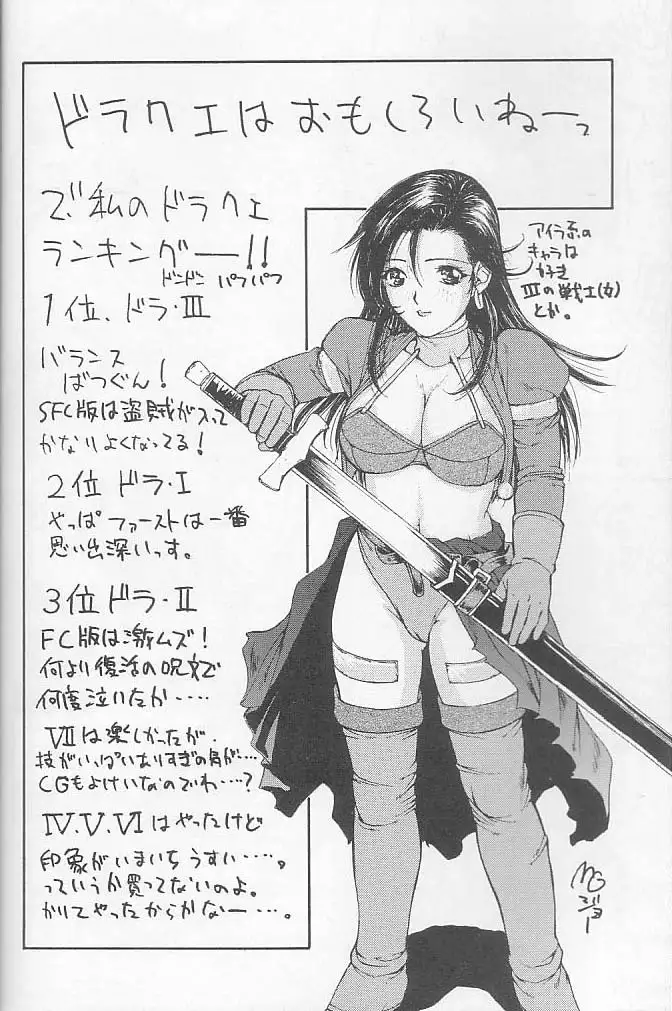 ドラクエはおもしろいねーっ
で、私のドラクエ
ランキングー!!
ドンドン パフパフ
1位、ドラ・Ⅲ
バランス
ばつぐん!
SFC版は盗賊が入って
かなりよくなってる!
2位 ドラ・Ⅰ
やっぱファーストは一番
思い出深いっす。
3位 ドラ・Ⅱ
FC版は激ムズ!
何より復活の呪文で
何度泣いたか・・・・
Ⅶは楽しかったが、
技がいっぱいありすぎの角が・・・
CGもよけいなのでわ・・・・?
Ⅳ.Ⅴ.Ⅵはやったけど
印象がいまいちうすい・・・・。
っていうか買ってないのよ。
かりてやったからかなー・・・・。
アイラ系の
キャラは
好き
Ⅲの戦士(女)
とか。